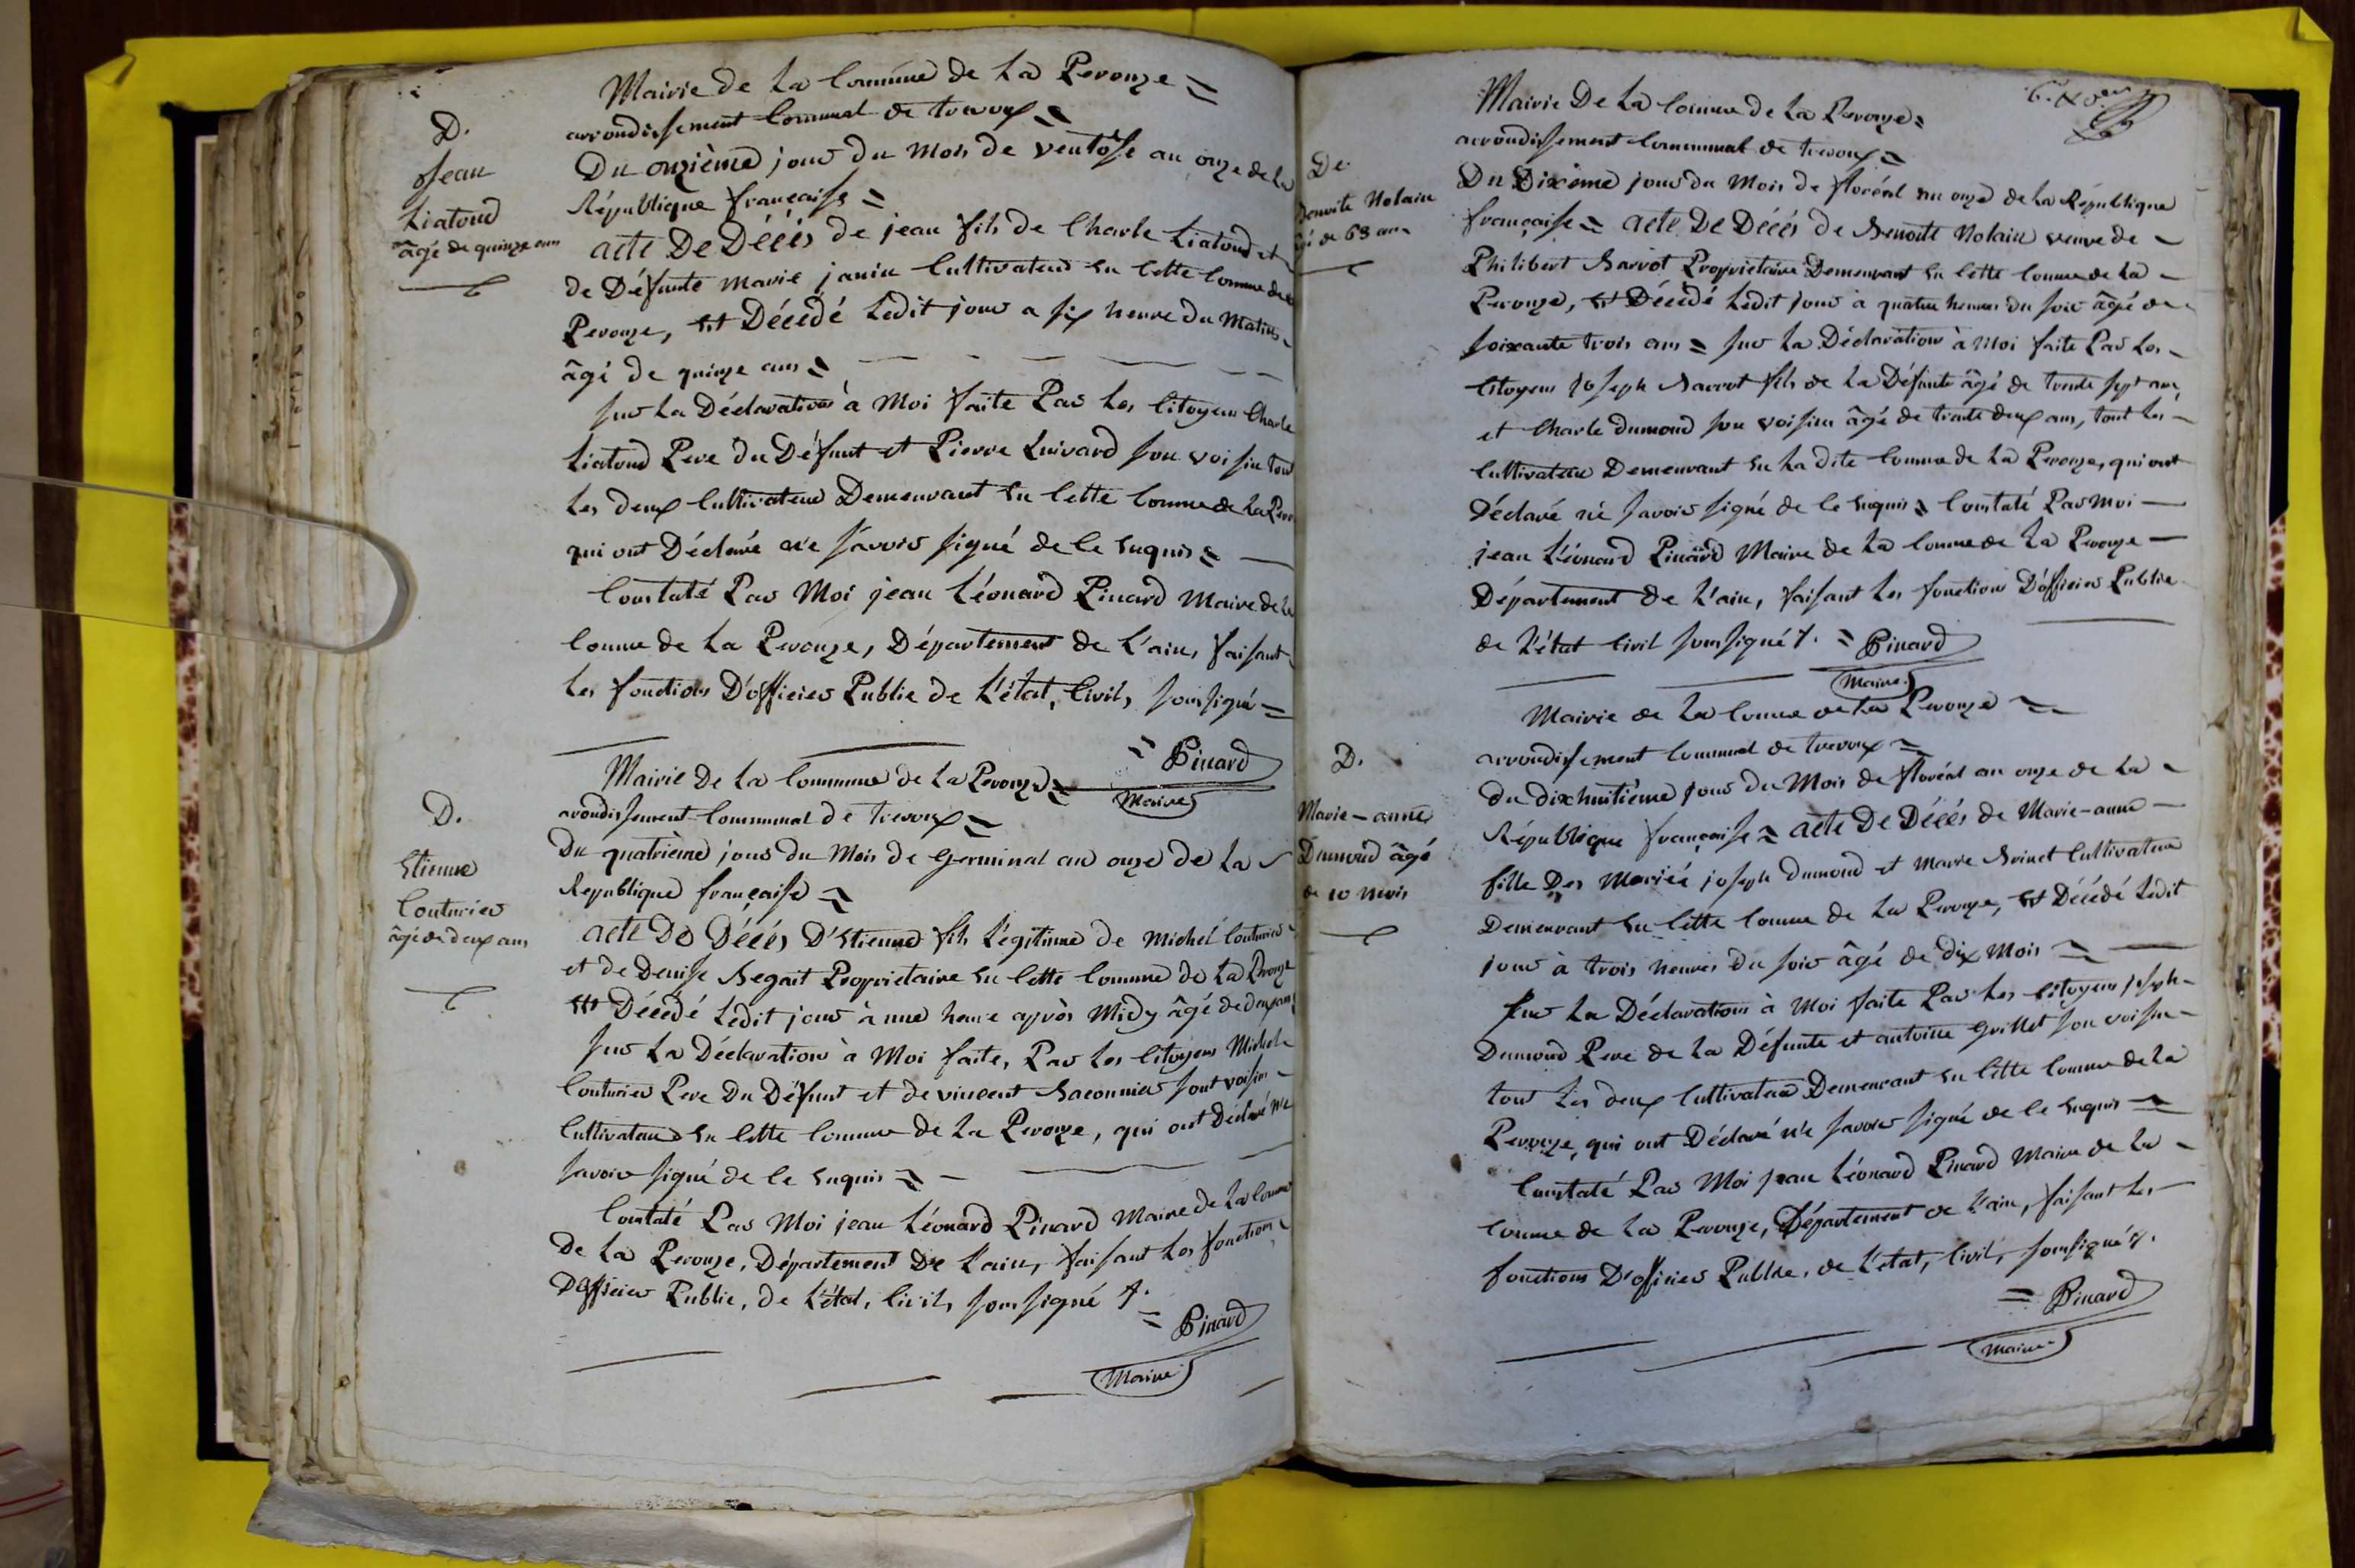 Mairie de la Commune de la Perouze =
D.
arrondissement Communal de trevoux =
Jean
Liatoud
âgé de quinze ans
Du onzième jour du Mois de ventôse an onze de la
République française =
acte De Décés de jean fils de Charle Liatoud et
de Défunte Marie janin Cultivateur en Cette Comune de la
Perouze, Est Décédé Ledit jour a six heure du Matin
âgé de quinze ans =
sur La Déclaration à Moi faite Par Les Citoyens Charle
Liatoud Pere du Défunt et Pierre Luivard son voisin tout
Les deux Cultivateur Demeurant en Cette Comune de La Perou
qui ont Déclaré ne savoir signé de Ce Enquis =
Constaté Par Moi jean Léonard Pinard Maire de la
Comune de La Perouze, Département de L'ain, faisant
Les fonctions D'officier Public de L'état, Civil, soussigné =
= Pinard
Maire
Mairie de La Commune de La Perouze =
D.
Etienne
Couturier
âgé de deux ans
arondissement Communal de trevoux =
Du quatrième jour du Mois de Germinal an onze de La
Republique française =
acte De Décés D'Etienne fils Légitime de Michel Couturier
et de Denise Segait Proprietaire en Cette Comune de La Perouze
Est Décédé Ledit jour à une heure après Midy âgé de deux ans
sur La Déclaration à Moi faite, Par Les Citoyens Michel
Couturier Pere Du Défunt et de vincent Saconnier sont voisin
Cultivateur en Cette Comune de La Perouze, qui ont Déclaré ne
savoir signé de Ce Enquis =
Constaté Par Moi jean Léonard Pinard Maire de La Comune
de La Perouze, Département De L'ain, faisant Les fonction
D'officier Public, de L'état, Civil, soussigné
= Pinard
Maire
Mairie De La Comune de La Perouze =
De
Benoite Nolain
âgé de 63 ans
arrondissement Communal de trevoux =
Du Dixième jour du Mois de floréal an onze de La République
française = acte De Décés de Benoite Nolain veuve de
Philibert Barrot Proprietaire Demeurant en Cette Comune de La
Perouze, Est Décédé Ledit jour à quatre heures du soir âgé de
soixante trois ans = sur La Déclaration à Moi faite Par Les
Citoyens Joseph Barrot fils de La Défunte âgé de trente sept ans
et Charle dumond son voisin âgé de trente deux ans, tout Les
Cultivateur Demeurant en La dite Comune de La Perouze, qui ont
Déclaré ne savoir signé de Ce Enquis = Constaté Par Moi
jean Léonard Pinard Maire de La Comune de La Perouze
Département de L'ain, faisant Les fonction D'officier Public
de L'état Civil soussigné = Pinard
Maire
Mairie de La Comune de La Perouze =
D.
Marie-anne
Dumond âgé
de 10 mois
arrondissement Communal de trevoux =
du dixhuitième jour du Mois de floréal an onze de La
République française = acte De Décés de Marie-anne
fille Des Mariés joseph dumond et Marie Brinet Cultivateur
Demeurant en Cette Comune de La Perouze, Est Décédé Ledit
jour à trois heures Du soir âgé de dix Mois =
sur La Déclaration à Moi faite Par Les Citoyens joseph
Dumond Pere de La Défunte et antoine Grillet son voisin
tout Les deux Cultivateur Demeurant en Cette Comune de La
Perouze, qui ont Déclaré ne savoir signé de Ce Enquis =
Constaté Par Moi jean Léonard Pinard Maire de La
Comune de La Perouze, Département de L'ain, faisant Les
fonctions D'officier Public, de L'état, Civil, soussigné
= Pinard
Maire